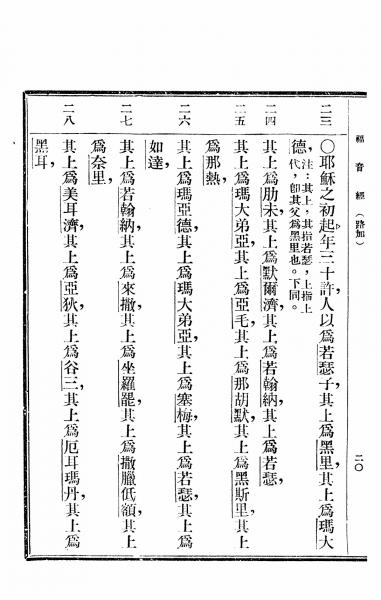 福音經(路加)
二〇
二三
○耶穌之初起年三十許人以爲若瑟子其上爲黑里其上爲瑪大
德注:其上,其指若瑟,上指上代,卽其父爲黑里也。下同。
二四
其上爲肋未其上爲默爾濟其上爲若翰納其上爲若瑟
二五
其上爲瑪大弟亞其上爲亞毛其上爲那胡默其上爲黑斯里其上
爲那熱
二六
其上爲瑪亞德其上爲瑪大弟亞其上爲塞梅其上爲若瑟其上爲
如達
二七
其上爲若翰納其上爲來撒其上爲坐羅罷其上爲撒臘低額其上
爲奈里
二八
其上爲美耳濟其上爲亞狄其上爲谷三其上爲厄耳瑪丹其上爲
黑耳